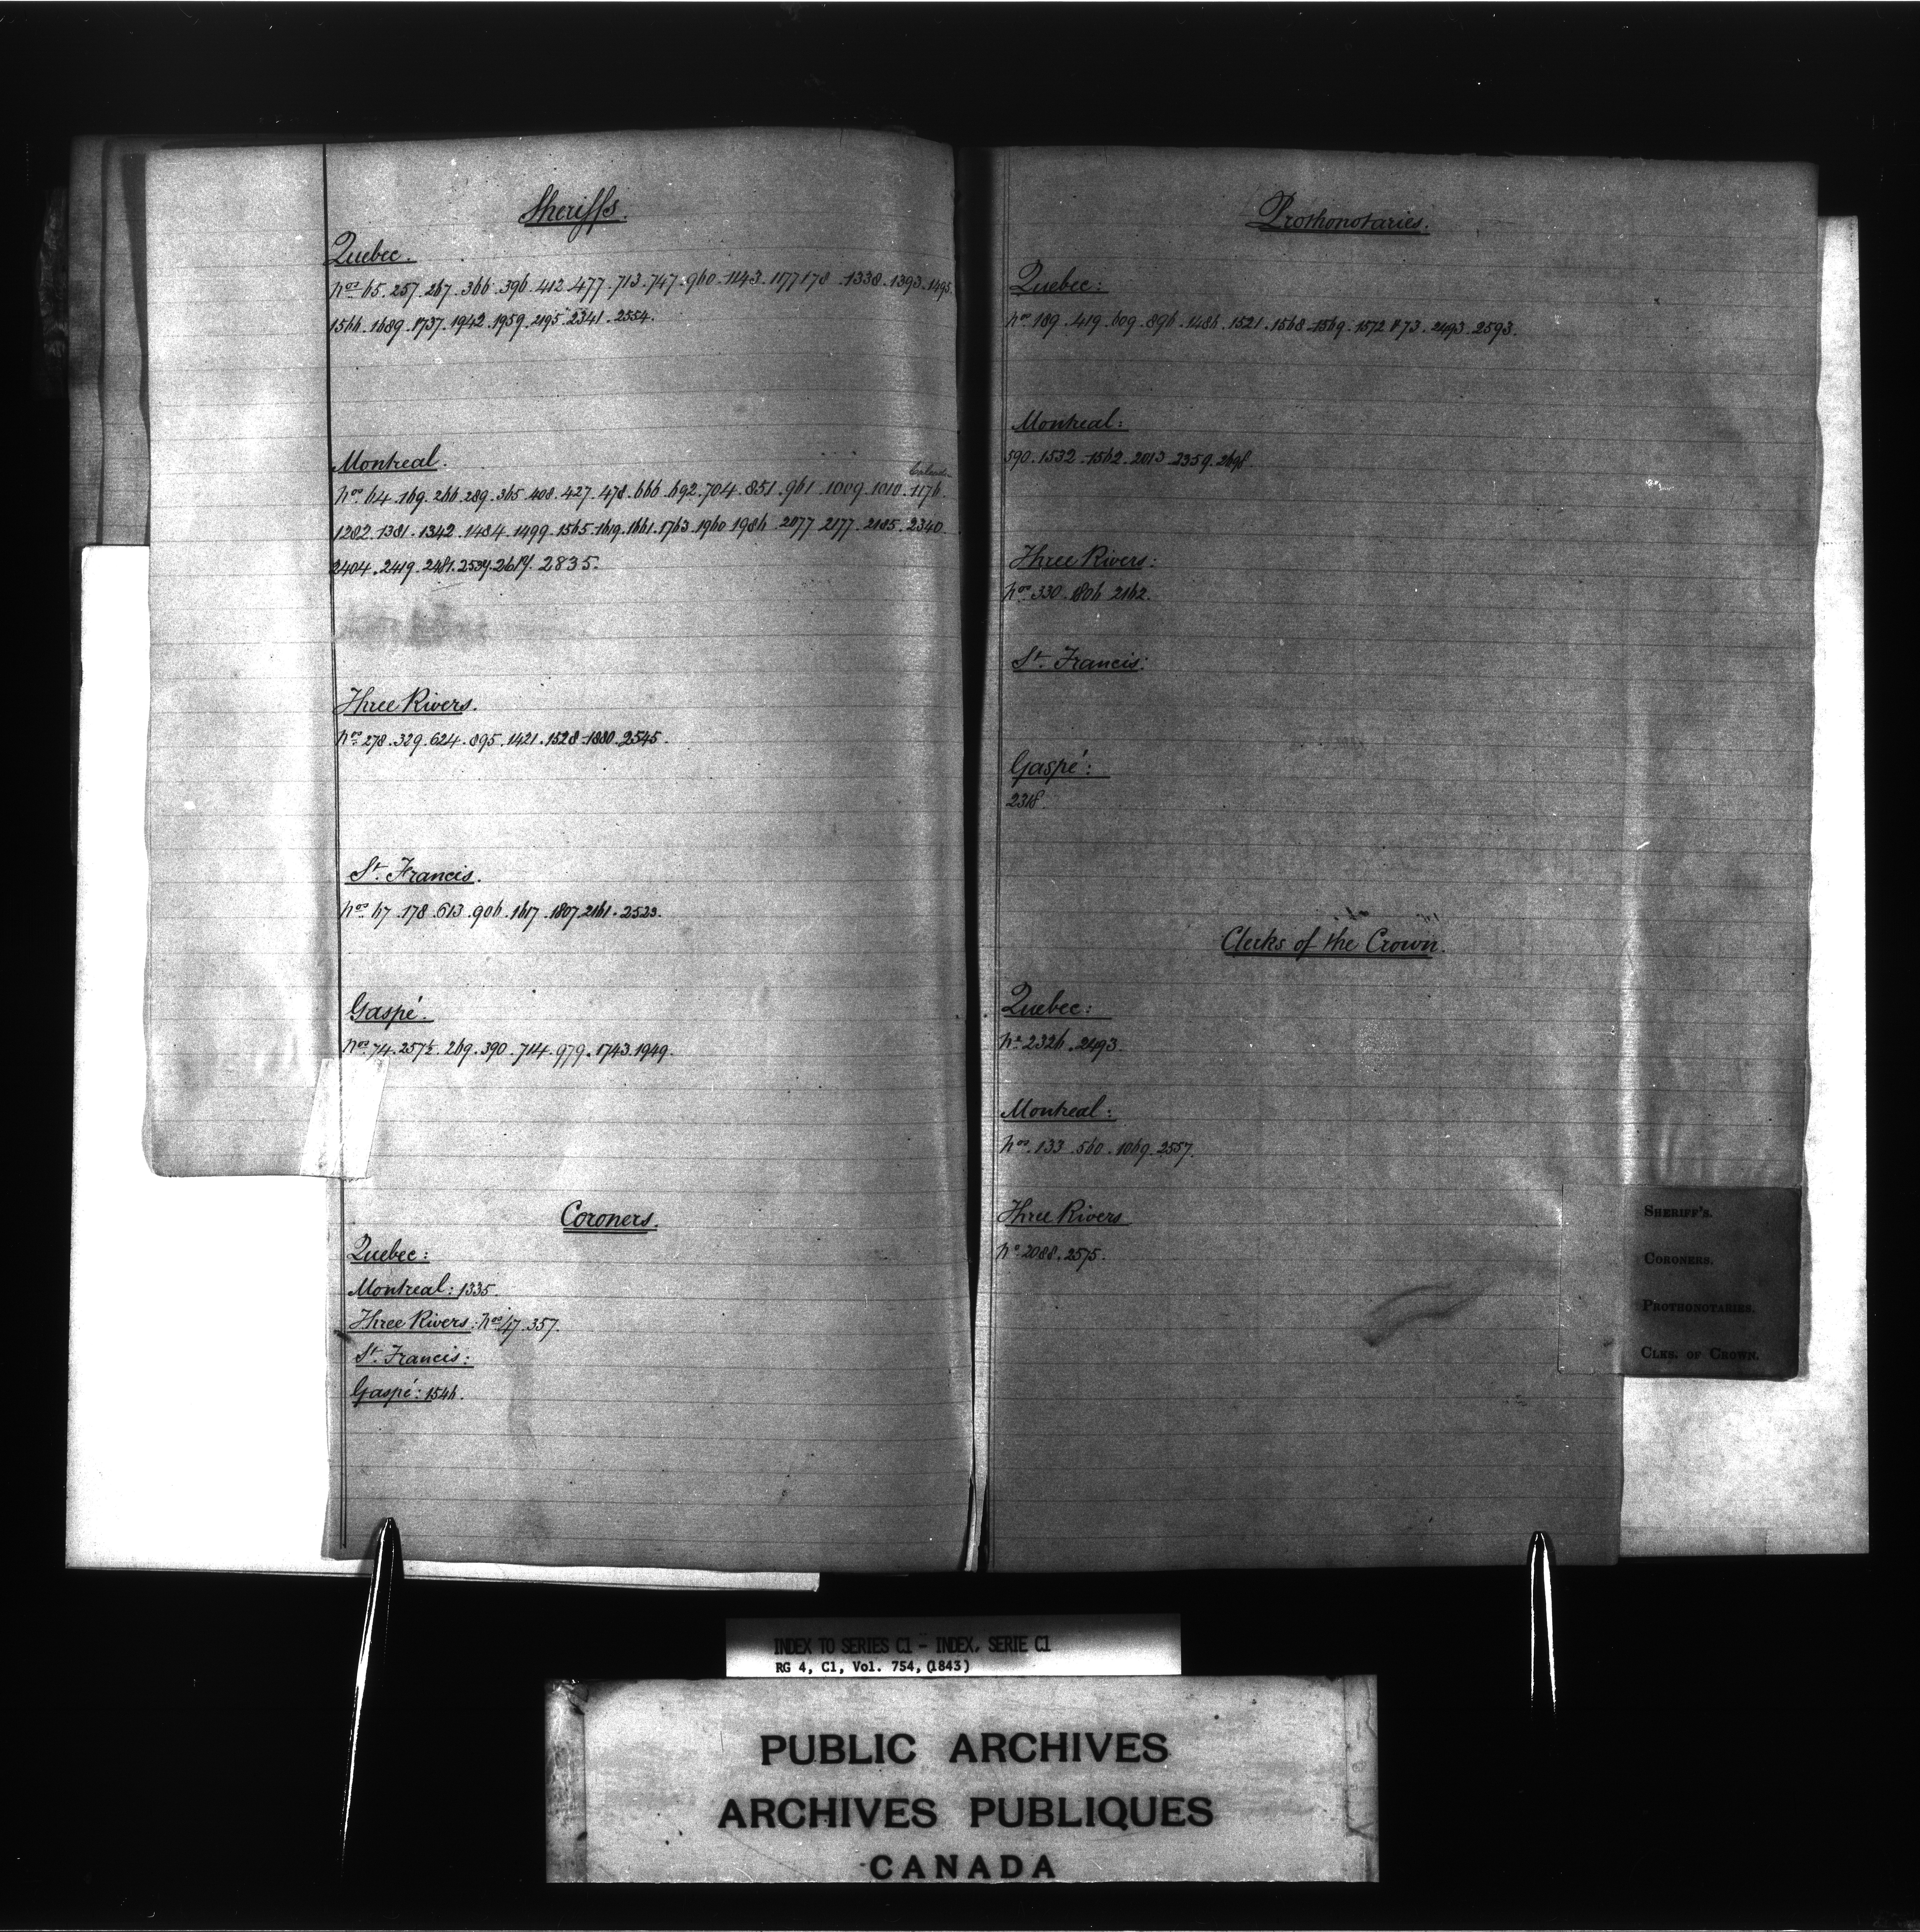 Sheriffs.
Quebec.
Nos 65. 257. 267. 366. 396. 412. 477. 713. 747. 960. 1143. 1177 178. 1338. 1393. 1495.
1566. 1689. 1737. 1942. 1959. 2195. 2341. 2554.
Montreal.
Nos 64. 169. 266. 289. 365. 408. 427. 478. 666. 692. 704. 851. 961. 1009. 1010. 1176.
1282. 1381. 1342. 1484. 1499. 1565. 1619. 1661. 1763. 1960. 1986. 2077. 2177. 2185. 2340.
2404. 2419. 2481. 2539. 2619. 2835.
Three Rivers.
Nos 278. 329. 624. 895. 1421. 1528. 1880. 2545.
St. Francis.
Nos 67. 178. 613. 906. 1617. 1807. 2161. 2523.
Gaspé.
Nos 74. 257½. 269. 390. 714. 979. 1743. 1949.
Coroners.
Quebec:
Montreal: 1335.
Three Rivers: Nos 47. 357.
St. Francis:
Gaspé: 1546.
Prothonotaries.
Quebec:
Nos 189. 419. 609. 896. 1486. 1521. 1568. 1569. 1572 & 73. 2493. 2593.
Montreal:
590. 1532. 1562. 2013. 2359. 2698.
Three Rivers:
Nos 330. 1806. 2162.
St. Francis:
Gaspé:
2318.
Clerks of the Crown.
Quebec:
No 2326. 2493.
Montreal:
Nos 133. 560. 1069. 2557.
Three Rivers
No 2088. 2575.
SHERIFF'S.
CORONERS.
PROTHONOTARIES.
CLKS. OF CROWN.
INDEX TO SERIES C1 - INDEX, SERIE C1
RG 4, C1, Vol. 754, (1843)
PUBLIC ARCHIVES
ARCHIVES PUBLIQUES
CANADA